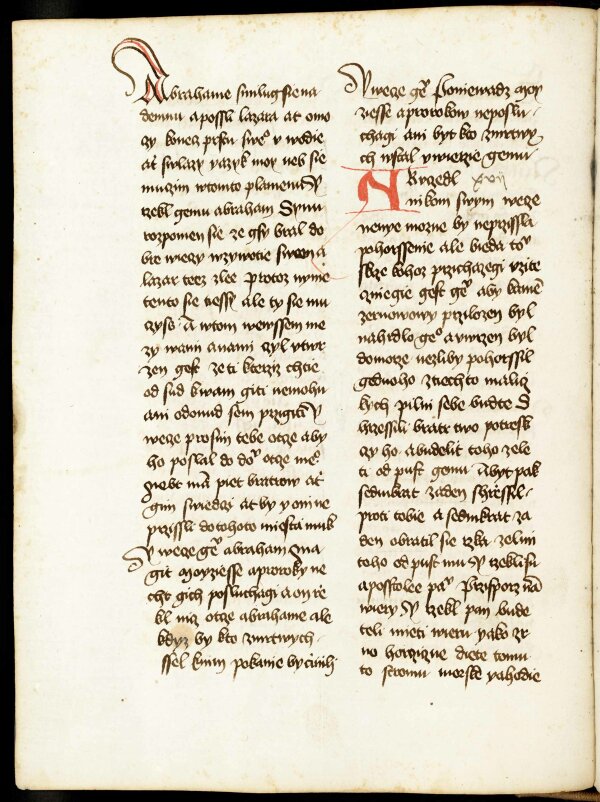 Abrahame smilug sie na
demnu a possli lazara at omo
czy konecz prstu sweº v wodie
at swlazy yazyk moy neb sie
muczim w tomto plameni Y
rzekl gemu abraham Synu
rozpomen sie ze gsy bral do
bre wieczy w zywotie swem a
lazar teez zlee protoz nynie
tento sie tiessy ale ty sie mu
czyss A w tom we wssem me
zy wami a nami
zen gest ze ti kterziz chtie
od sud k wam giti nemohu
ani odonud sem przigiti Y
wece prosim tebe otcze aby
ho poslal do doº otcze meº
nebt mā piet bratrow at
gim swiedczi at by y oni ne
przissli do tohoto miesta muk
Y wece geº abraham ma
git moyziesse a proroky ne
cht gich posluchagi a on rze
kl niz otcze abrahame ale
kdyz by kto z mrtwych
ssel k nim pokanie by cinili
Y wece geº Poniewadz moy
ziesse a prorokow neposlu
chagi ani byt kto z mrtwy
ch wstal vwierzie gemu
N Rzekl xvij
nikom swym wece
nenye mozne by neprzissla
pohorssenie ale bieda toº
skrze kohoz przichazegi vzite
czniegie gest geº aby kamē
zernowowy przilozen byl
na hrdlo geº a vwrzen byl
do morze nezliby pohorssil
gednoho z tiechto malicz
kych pilni sebe budte S
hrzessili bratr two potresk
czy ho a budelit toho zele
ti od pust gemu A byt pak
sedmkrat za den shrzessil
proti tobie a sedmkrat za
den obratil sie rzka zelim
toho od pust mu Y rzekli su
aposstolee paº Przisporz nā
wiery Y rzekl pan bude
teli mieti wieru yako zr
no horczicne diete tomu
to stromu morske yahodie